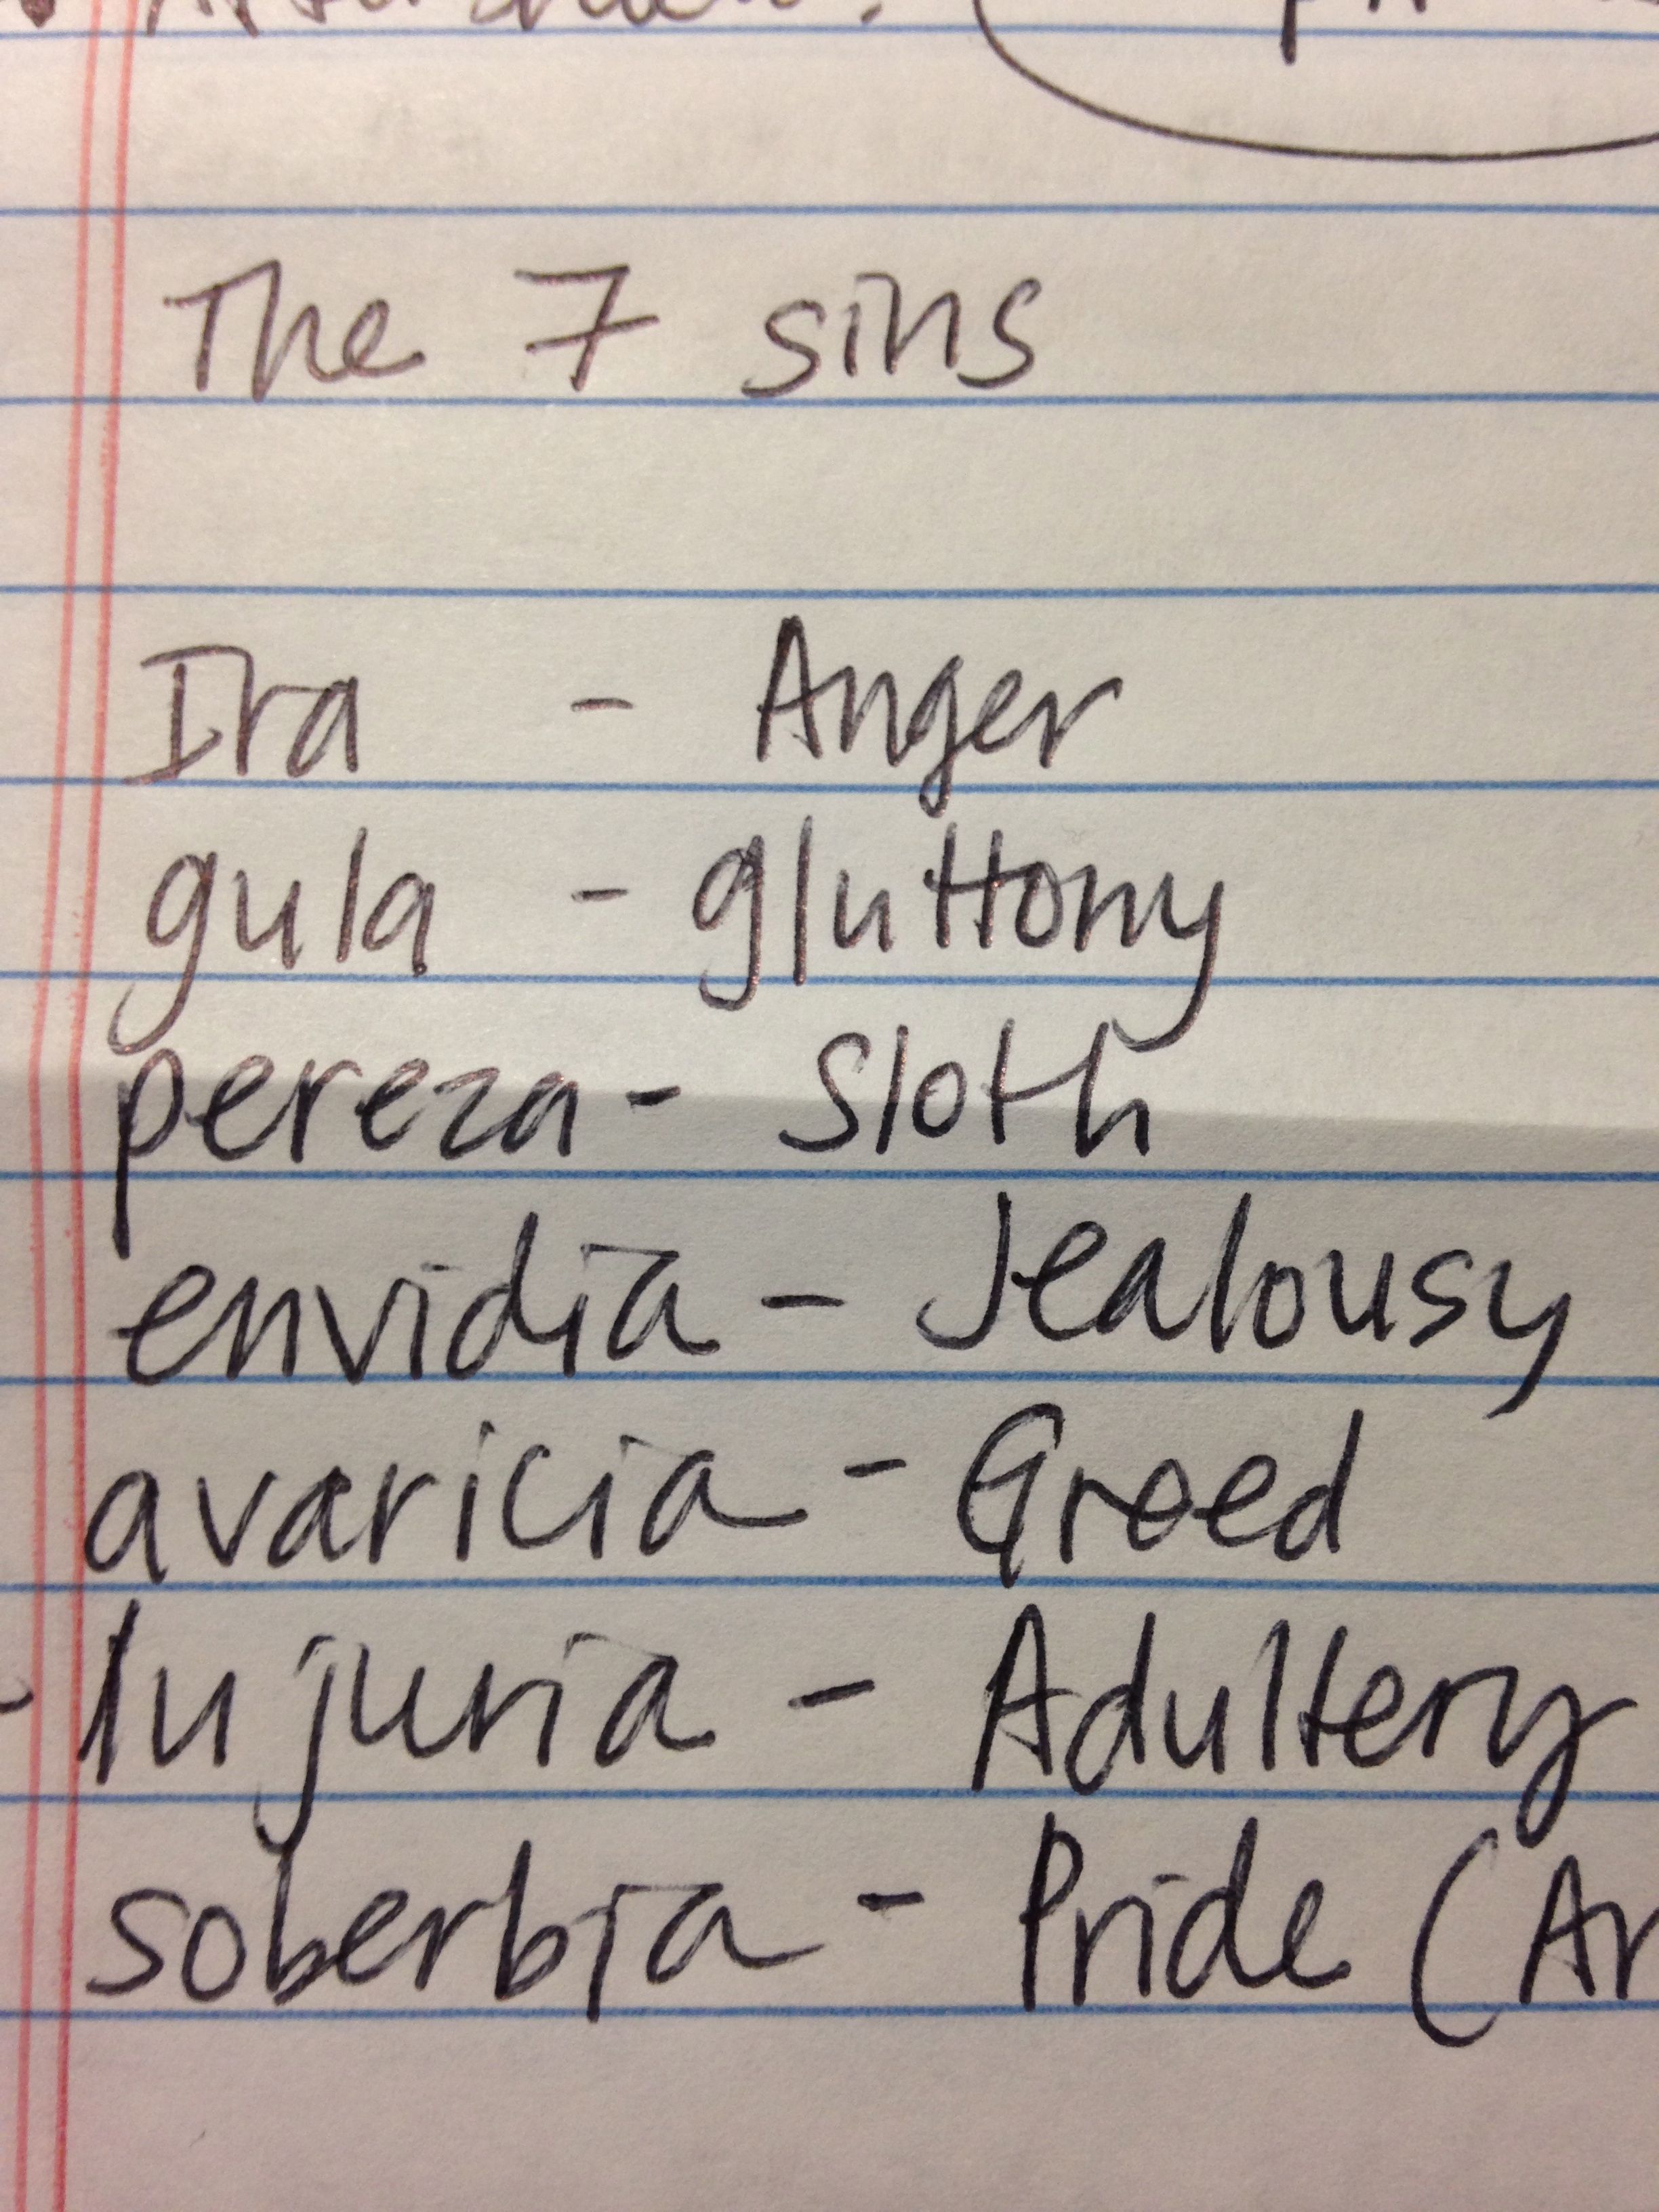 The 7 sins
Ira - Anger
gula - gluttony
pereza - Sloth
envidia - Jealousy
avaricia - Greed
- lujuria - Adultery
soberbia - Pride (Ar